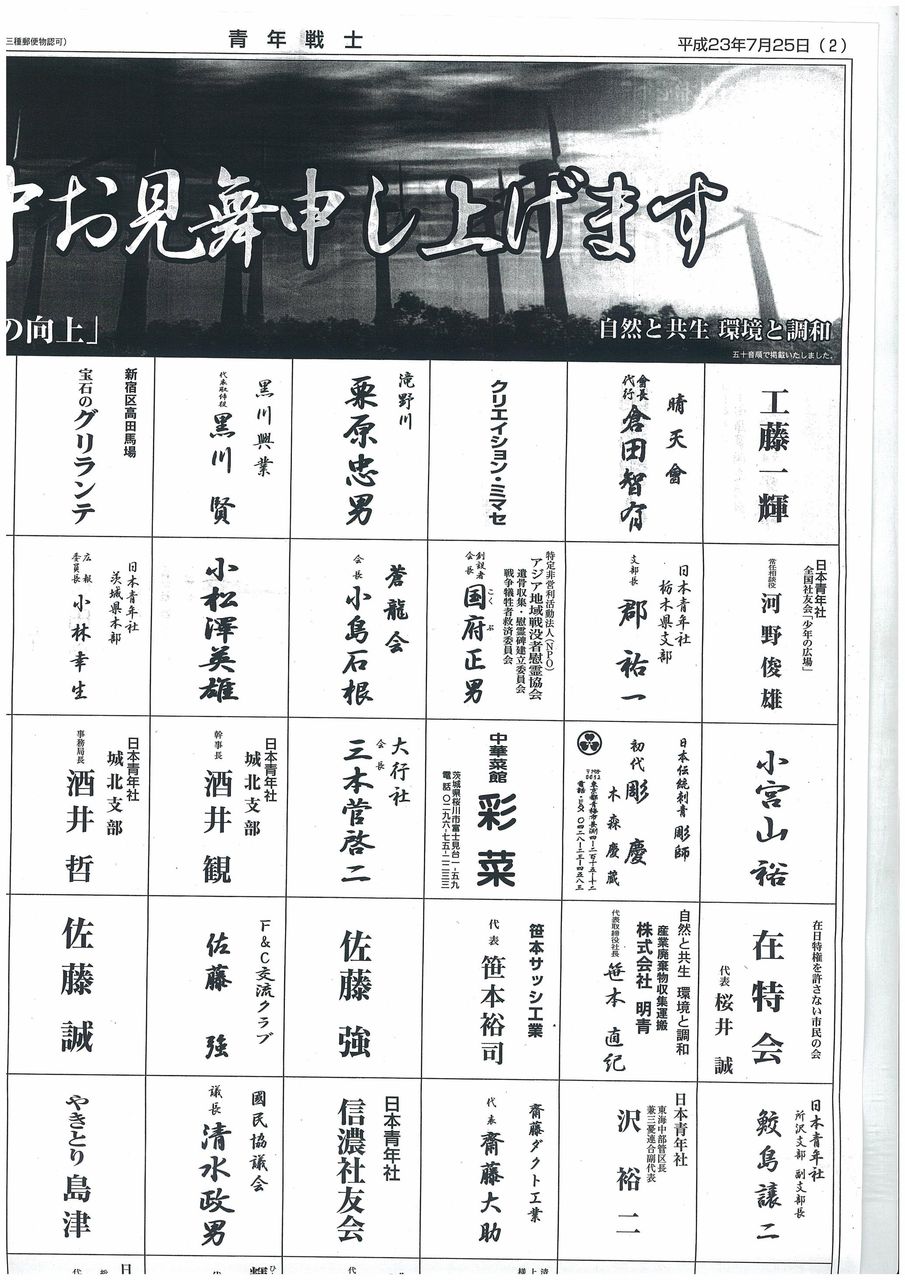 三種郵便物認可)
青年戦士
平成23年7月25日(2)
中お見舞申し上げます
の向上」
自然と共生 環境と調和
五十音順で掲載いたしました。
工藤一輝
晴天會
會長代行 倉田智有
クリエイション・ミマセ
滝野川
栗原忠男
黒川興業
代表取締役 黒川賢
新宿区高田馬場
宝石のグリランテ
日本青年社
全国社友会「少年の広場」
常任相談役 河野俊雄
日本青年社
栃木県支部
支部長 郡祐一
特定非営利活動法人(NPO)
アジア地域戦没者慰霊協会
遺骨収集・慰霊碑建立委員会
戦争犠牲者救済委員会
創設者
会長 国府正男
こくぶ
蒼龍会
会長 小島石根
小松澤英雄
日本青年社
茨城県本部
広報委員長 小林幸生
小宮山裕
日本伝統刺青 彫師
初代 彫慶
木森慶蔵
東京都青梅市長淵四-二百十五-十二
中華菜館
彩菜
茨城県桜川市富士見台一-五九
電話 〇二九六-七五-二二三三
大行社
会長 三本菅啓二
日本青年社
城北支部
幹事長 酒井観
日本青年社
城北支部
事務局長 酒井哲
在日特権を許さない市民の会
在特会
代表 桜井誠
自然と共生 環境と調和
産業廃棄物収集運搬
株式会社 明青
代表取締役社長 笹本直紀
笹本サッシ工業
代表 笹本裕司
佐藤強
F&C交流クラブ
佐藤強
佐藤誠
日本青年社
所沢支部 副支部長
鮫島譲二
日本青年社
東海中部管区長
兼三憂連合副代表
沢裕二
齋藤ダクト工業
代表 齋藤大助
日本青年社
信濃社友会
國民協議会
議長 清水政男
やきとり 島津